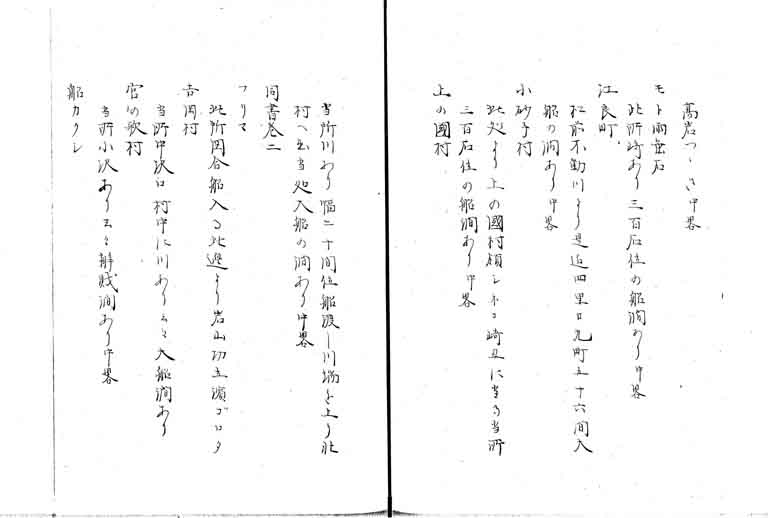 高岩つゝき中畧
モト雨垂石
此所崎あり三百石位の船澗あり中畧
江良町
松前不動川より是迄四里日元町五十六間入
船の澗あり中畧
小砂子村
此処より上の國村領シネコ崎丑に当る当所
三百石位の船澗あり中畧
上の國村
当所川あり幅二十間位船渡し川端を上り北
村へ出当処入船の澗あり中畧
同書巻二
フリマ
此所図合船入る此辺より岩山切立濱ゴロタ
吉岡村
当所中沢口村中に川あり云々大船澗あり
宮の歌村
当所小沢あり云々弁財澗あり中畧
船カクレ